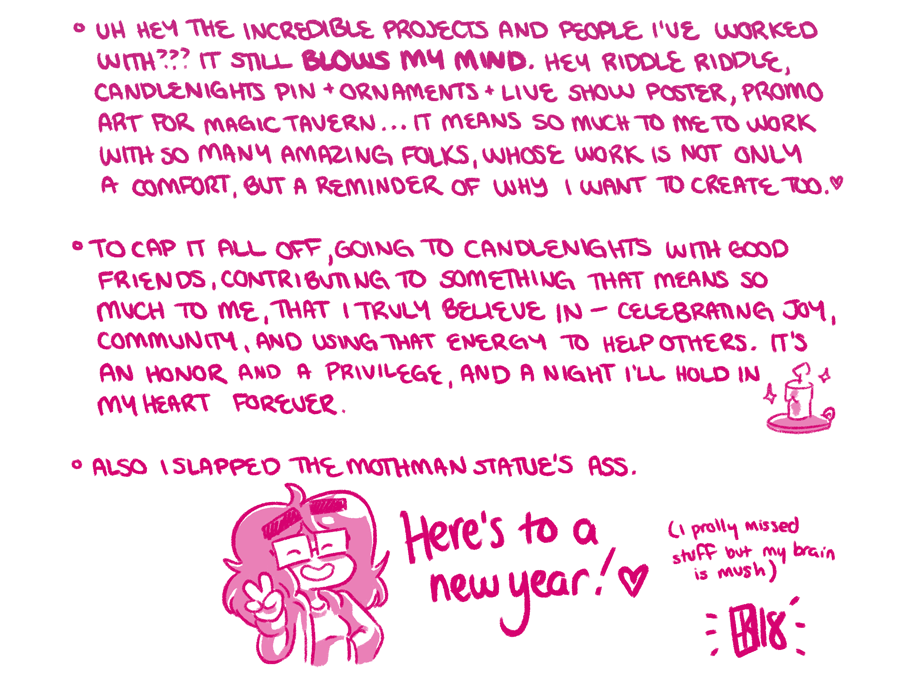 • UH HEY THE INCREDIBLE PROJECTS AND PEOPLE I'VE WORKED
WITH??? IT STILL BLOWS MY MIND. HEY RIDDLE RIDDLE,
CANDLENIGHTS PIN + ORNAMENTS + LIVE SHOW POSTER, PROMO
ART FOR MAGIC TAVERN... IT MEANS SO MUCH TO ME TO WORK
WITH SO MANY AMAZING FOLKS, WHOSE WORK IS NOT ONLY
A COMFORT, BUT A REMINDER OF WHY I WANT TO CREATE TOO. ♡
• TO CAP IT ALL OFF, GOING TO CANDLENIGHTS WITH GOOD
FRIENDS, CONTRIBUTING TO SOMETHING THAT MEANS SO
MUCH TO ME, THAT I TRULY BELIEVE IN – CELEBRATING JOY,
COMMUNITY, AND USING THAT ENERGY TO HELP OTHERS. IT'S
AN HONOR AND A PRIVILEGE, AND A NIGHT I'LL HOLD IN
MY HEART FOREVER.
• ALSO I SLAPPED THE MOTHMAN STATUE'S ASS.
Here's to a
new year! ♡
(I prolly missed
stuff but my brain
is mush)
18